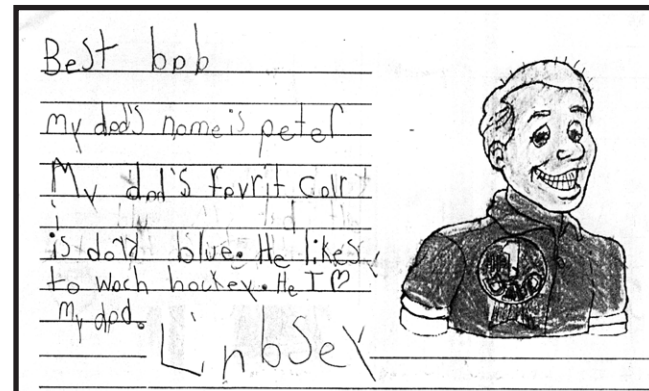 Best bab
My dad's name is peter
My dad's favrit colr
is dark blue. He likes
to wach hockey. He I ♡
My dad.
Linbsey
1